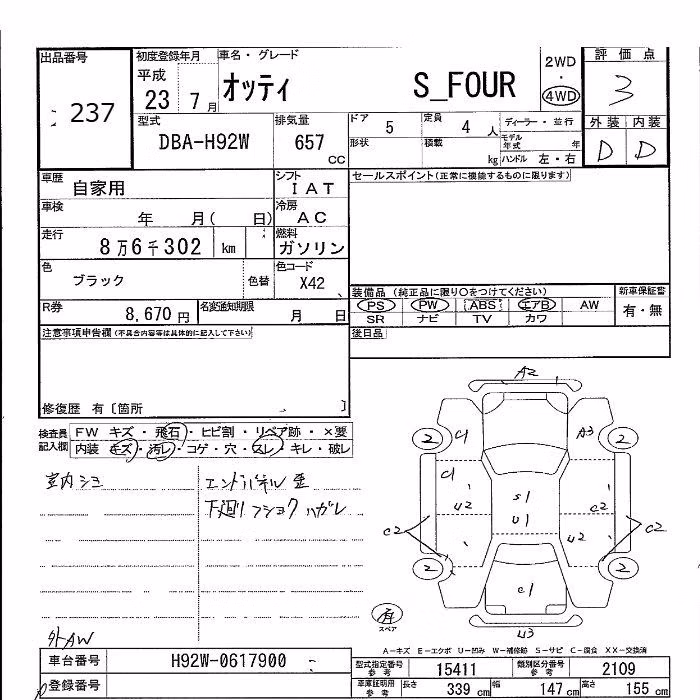 出品番号 237
初度登録年月 平成 23 7 月
車名・グレード オッティ S_FOUR
2WD ・ 4WD
評価点 3
型式 DBA-H92W
排気量 657 CC
ドア 5 定員 4 人
ディーラー・並行
形状 積載 kg
モデル年式 年
ハンドル 左・右
外装 内装
D D
車歴 自家用
シフト IAT
セールスポイント(正常に機能するものに限ります)
車検 年 月( 日)
冷房 AC
走行 8万6千302 km
燃料 ガソリン
色 ブラック 色替
色コード X42
装備品 (純正品に限り○をつけてください)
新車保証書
PS PW ABS エアB AW
有・無
SR ナビ TV カワ
R券 8,670 円
名変通知期限 月 日
後日品
注意事項申告欄(不具合内容等は具体的に記入して下さい)
修復歴 有〔箇所 〕
検査員記入欄
FW キズ・飛石・ヒビ割・リペア跡・×要
内装 キズ・汚レ・コゲ・穴・スレ・キレ・破レ
室内ショ
エンドパネル歪
下廻リフショクハガレ
A2
2 C1 A3 2
C1
U2 S1 C2
C2 U1 U2 C2
2 C1 2
U3
スペア
外AW
A-キズ E-エクボ U-凹み W-補修跡 S-サビ C-腐食 XX-交換済
車台番号 H92W-0617900
型式指定番号 参考 15411
類別区分番号 参考 2109
登録番号
車庫証明用 参考 長さ 339 cm 幅 147 cm 高さ 155 cm